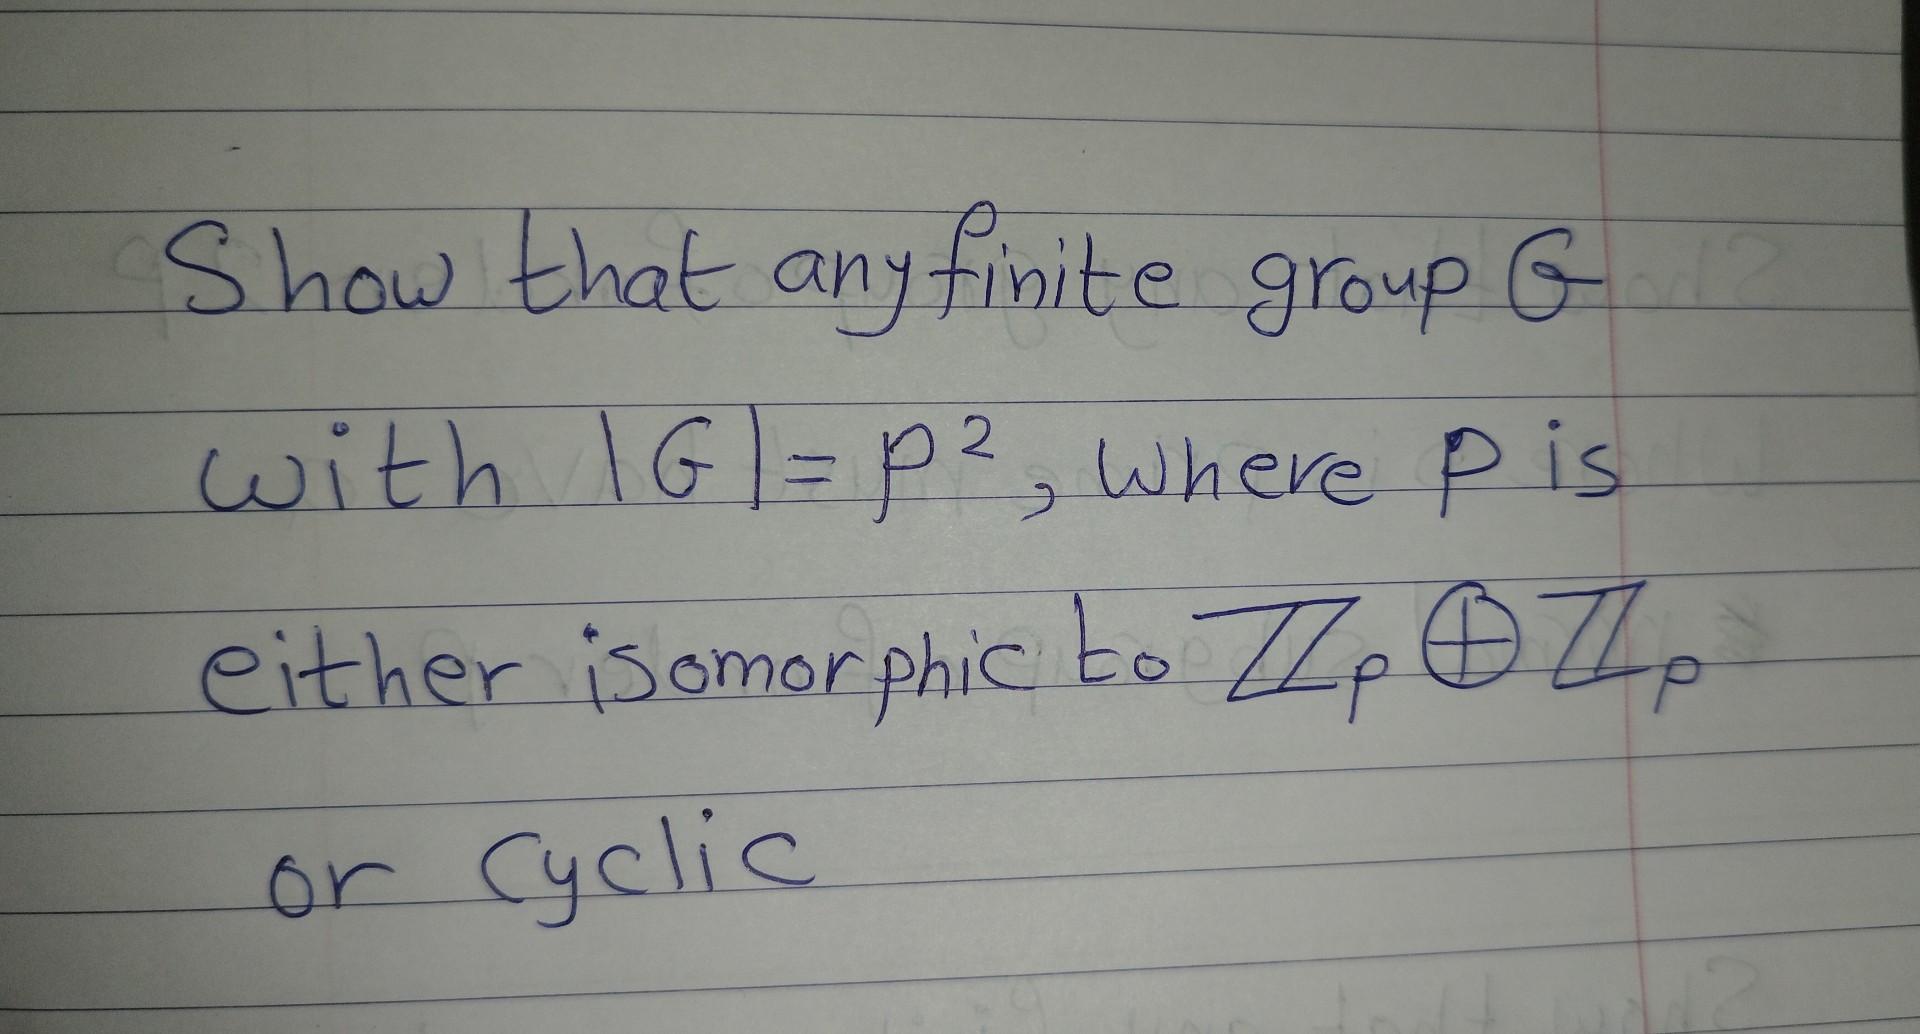 Show that any finite group G
with |G| = p², where p is
either isomorphic to ℤₚ ⊕ ℤₚ
or cyclic